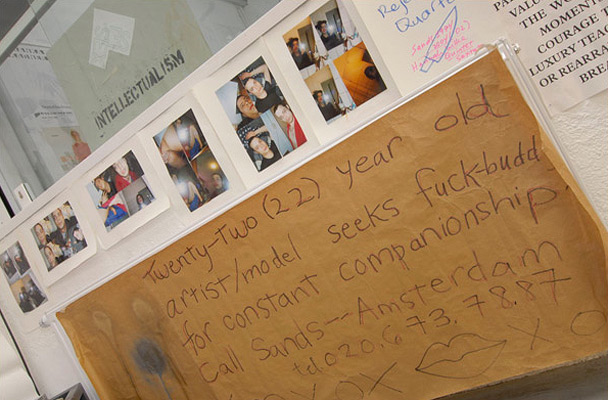 INTELLECTUALISM
Quartz
VALU
THE WO
MOMENT
COURAGE T
LUXURY TEA
OR REARRA
BREA
Twenty-Two (22) year old
artist/model seeks fuck-budd
for constant companionship.
Call Sands--Amsterdam
tel 020.673.78.87
XOX X O